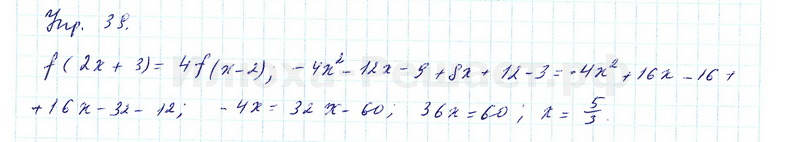 Упр. 39.
f(2x+3) = 4f(x-2), -4x² - 12x - 9 + 8x + 12 - 3 = -4x² + 16x - 16 +
+ 16x - 32 - 12; -4x = 32x - 60; 36x = 60; x = 5/3.